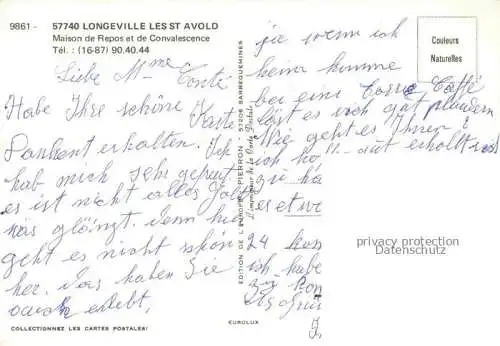 9861 - 57740 LONGEVILLE LES ST AVOLD
Maison de Repos et de Convalescence
Tél. : (16-87) 90.40.44
Liebe Mme Conté
Habe Ihre schöne Karte
Dankent erhalten. Ich
hab mich sehr gefreut
es ist nicht alles Gold
was glänzt. denn hier
geht es nicht schön
her. Das haben Sie
auch erlebt,
COLLECTIONNEZ LES CARTES POSTALES!
EDITION DE L'EUROPE PIERRON 57206 SARREGUEMINES
EUROLUX
Couleurs
Naturelles
wenn ich
heim komme
bei eine Caffé
läst es sich gut plaudern
Wie geht es Ihnen?
ich ho gut erholt
zu ha
es etw
24
ich habe
privacy protection
Datenschutz